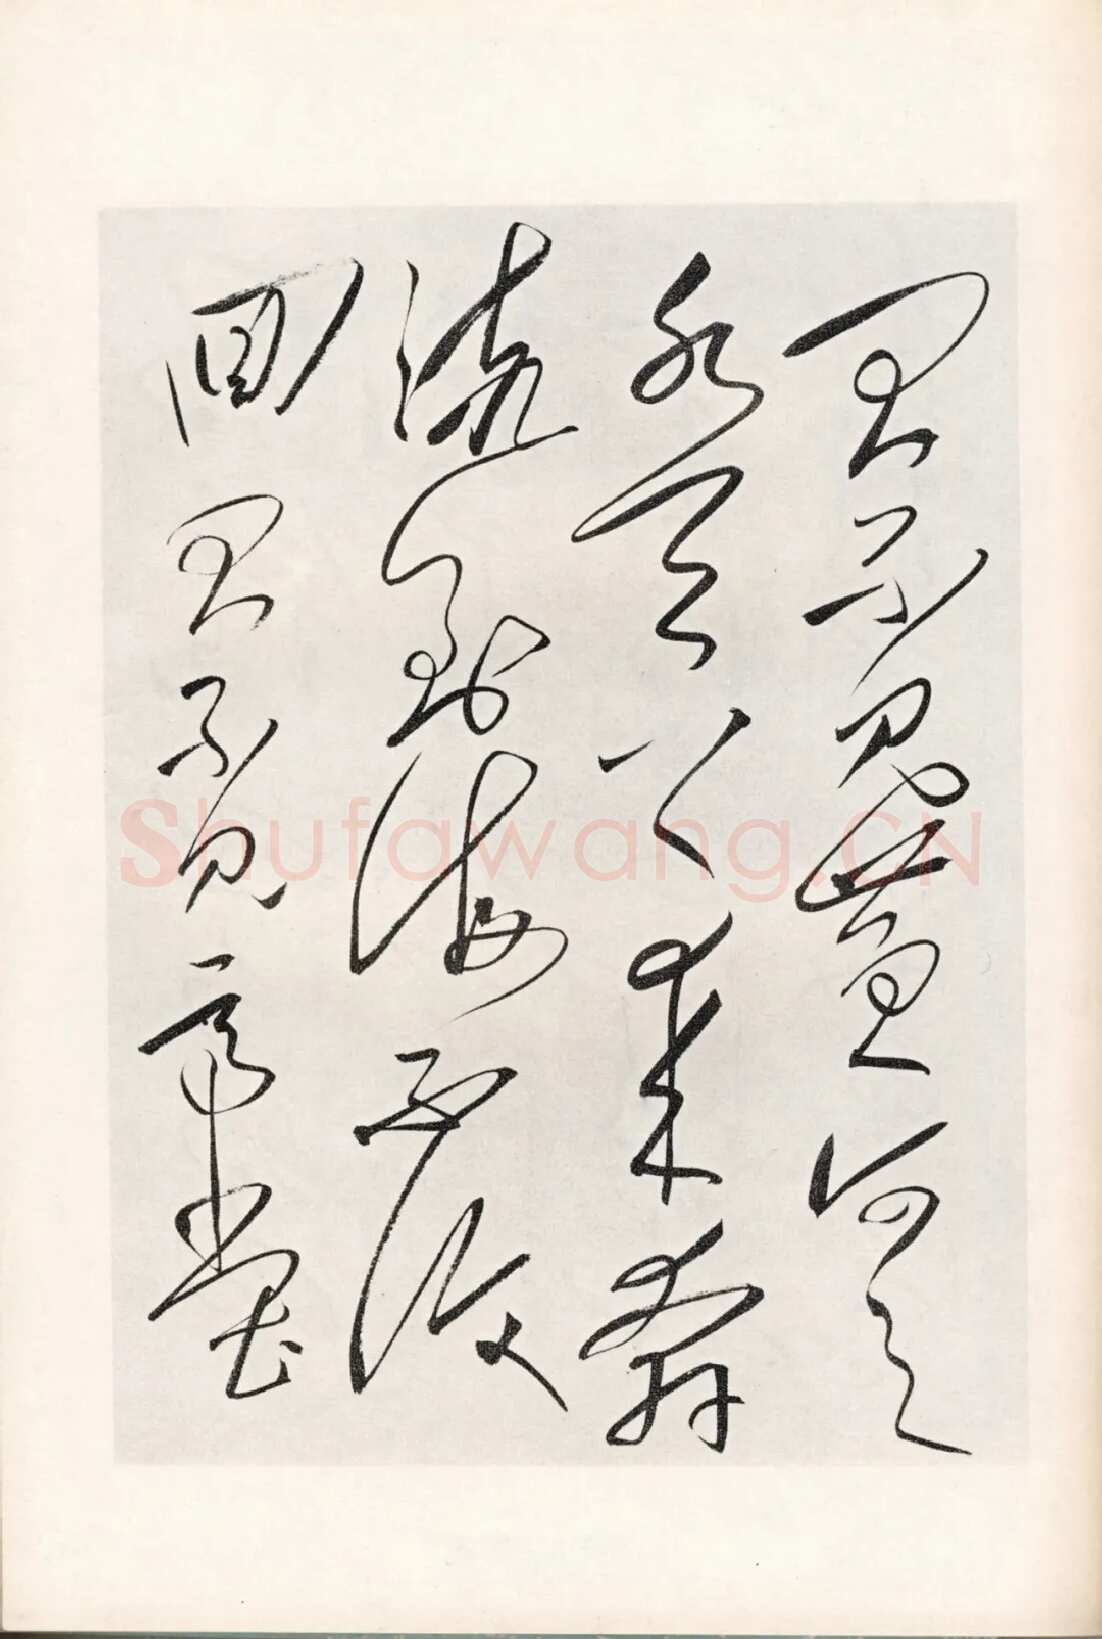 君不見黃河之
水天上來奔
流到海不復
回君不見高堂
Shufawang.CN